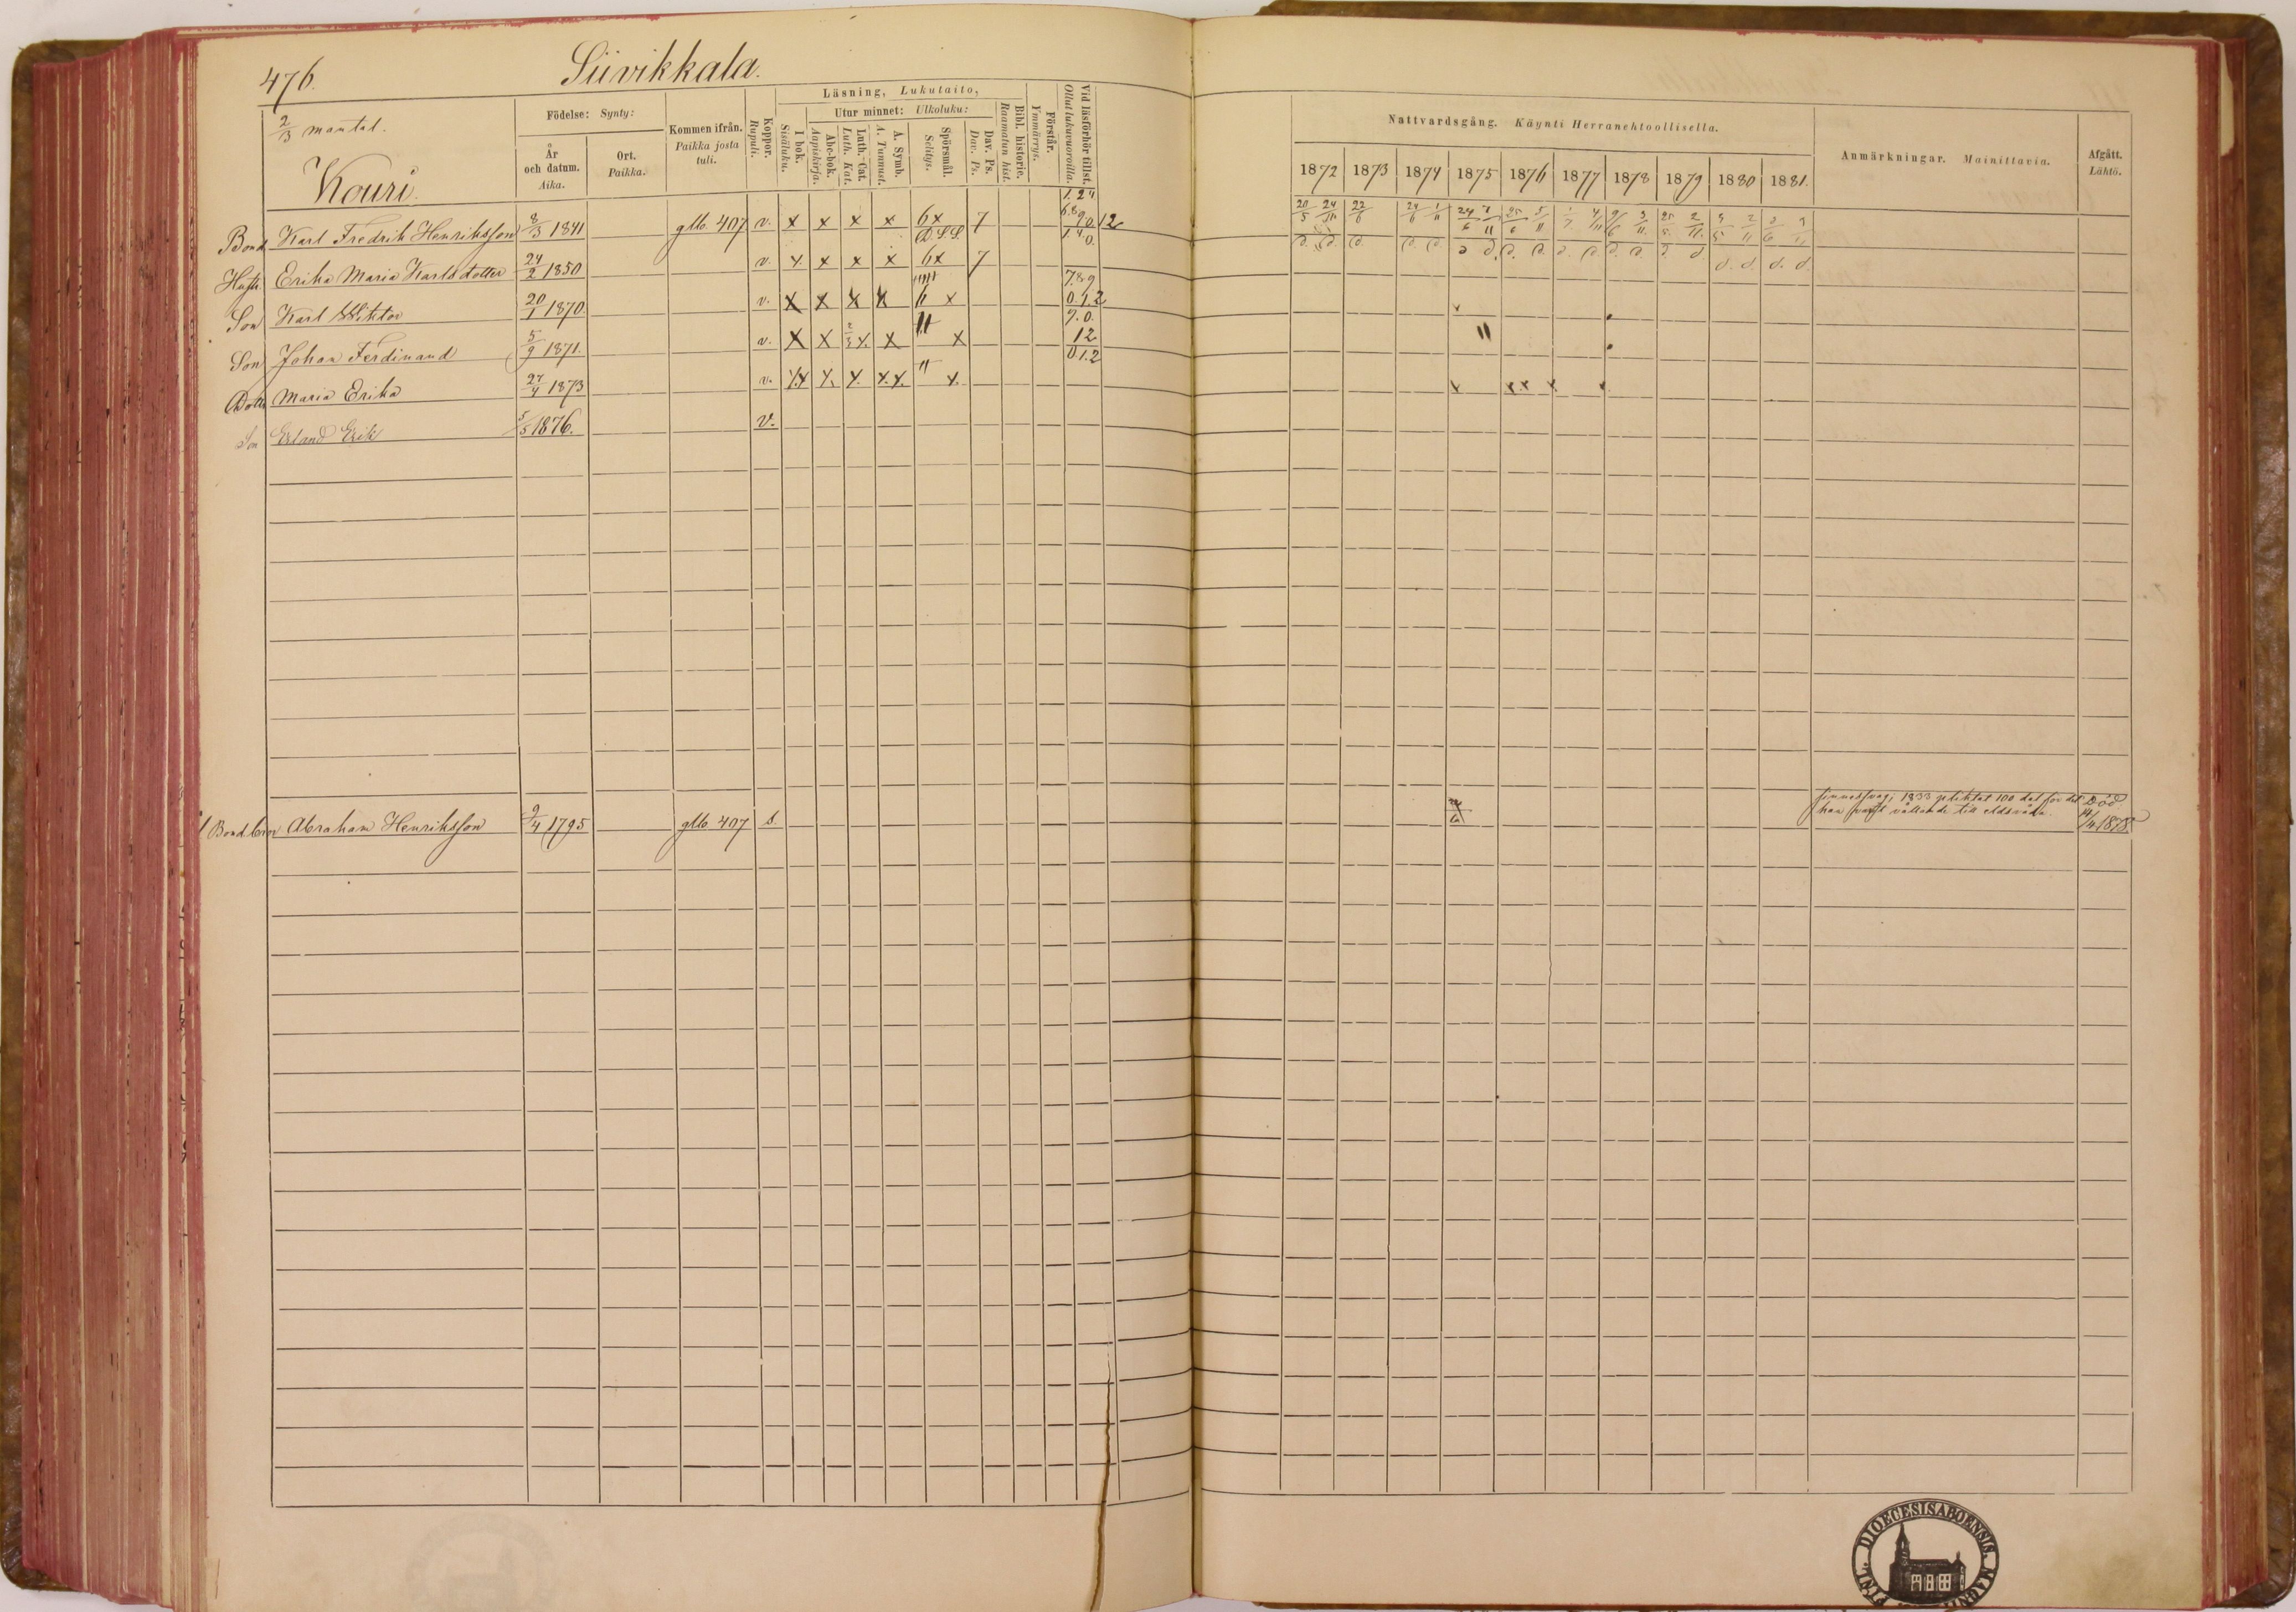 476.
Siivikkala.
2/3 mantal.
Kouri.
Födelse: Synty:
År och datum. Aika.
Ort. Paikka.
Kommen ifrån. Paikka josta tuli.
Koppor. Rupuli.
Läsning, Lukutaito,
I bok. Sisäluku.
Utur minnet: Ulkoluku:
Abc-bok. Aapiskirja.
Luth.-Cat. Luth. Kat.
A. Symb. A. Tunnust.
Spörsmål. Selitys.
Dav. Ps. Dav. Ps.
Bibl. historie. Raamatun hist.
Förstår. Ymmärrys.
Vid läsförhör tillst. Ollut lukuvuoroilla.
Nattvardsgång. Käynti Herranehtoollisella.
1872 1873 1874 1875 1876 1877 1878 1879 1880 1881.
Anmärkningar. Mainittavia.
Afgått. Lähtö.
Bond Karl Fredrik Henriksson 8/3 1841 glb. 407 v. x x x x 6x 7
Hustr. Erika Maria Karlsdotter 24/2 1850 v. x x x x 6x 7
Son Karl Wiktor 20/1 1870 v. x x x x
Son Johan Ferdinand 5/9 1871. v. x x
Dottr Maria Erika 27/4 1873 v.
Son Erland Erik 5/5 1876. v.
Bondbror Abraham Henriksson 9/4 1795 glb. 407 s. 1833 100 för det Död
han till eldsvåda. 14/4 1878
DIOECESIS ABOENSIS